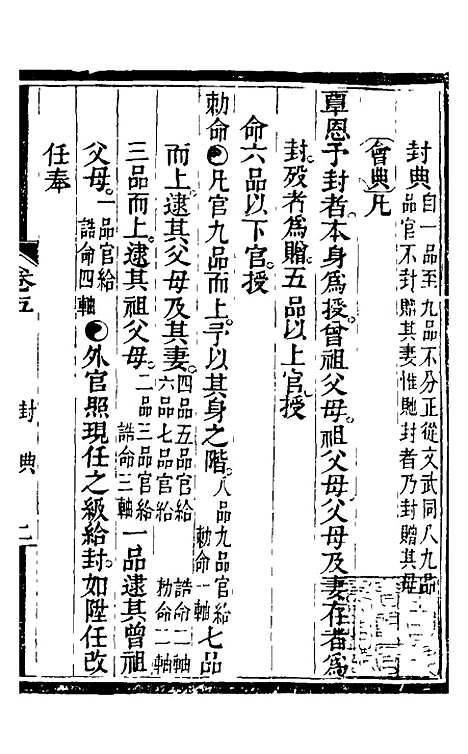 封典自一品至九品不分正從文武同八九品
品官不封贈其妻惟貤封者乃封贈其母
會典凡
覃恩予封者本身爲授曾祖父母祖父母父母及妻存者爲
封歿者爲贈五品以上官授
命六品以下官授
勅命凡官九品而上予以其身之階八品九品官給勅命一軸七品
而上逮其父母及其妻四品五品官給誥命二軸六品七品官給勅命二軸
三品而上逮其祖父母二品三品官給誥命三軸一品逮其曾祖
父母一品官給誥命四軸外官照現任之級給封如陞任改
任奉
卷五
封典
二